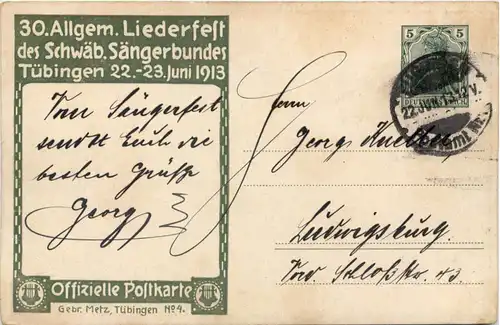 30. Allgem. Liederfest
des Schwäb. Sängerbundes
Tübingen 22.-23. Juni 1913
Vom Sängerfest
sendet Euch die
besten Grüße
Georg
Offizielle Postkarte
Gebr. Metz, Tübingen No 4.
5 5
DEUTSCHES REICH
22 JUN 13
Herrn
Georg
Ludwigsburg.
Schloßstr. 43.